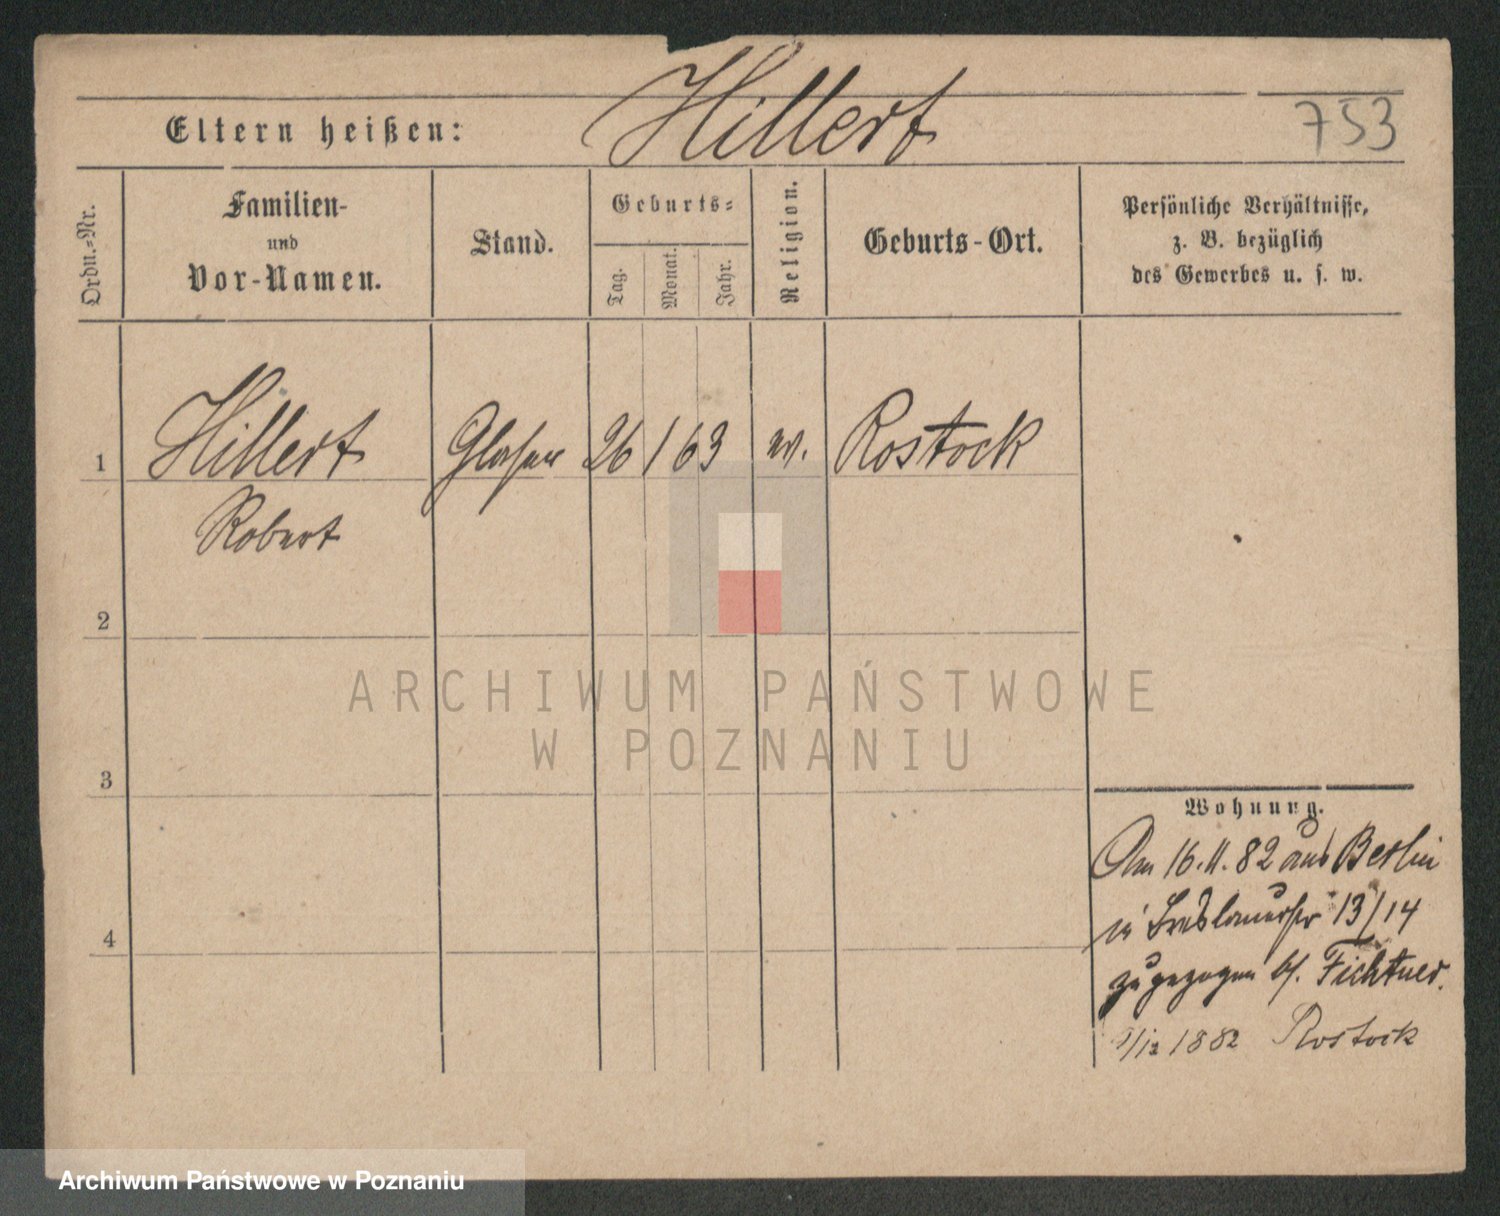 Hillert
Eltern heißen:
753
Ordn.=Nr.
Familien-
und
Vor-Namen.
Stand.
Geburts=
Tag.
Monat.
Jahr.
Religion.
Geburts-Ort.
Persönliche Verhältnisse,
z. B. bezüglich
des Gewerbes u. s. w.
1
Hillert
Glaser
26 1 63
ev.
Rostock
Robert
2
ARCHIWUM PAŃSTWOWE
W POZNANIU
3
Wohnung.
Am 16.11.82 aus Berlin
in Breslauerstr 13/14
4
zugezogen bf. Fichtner.
/12 1882 Rostock
Archiwum Państwowe w Poznaniu